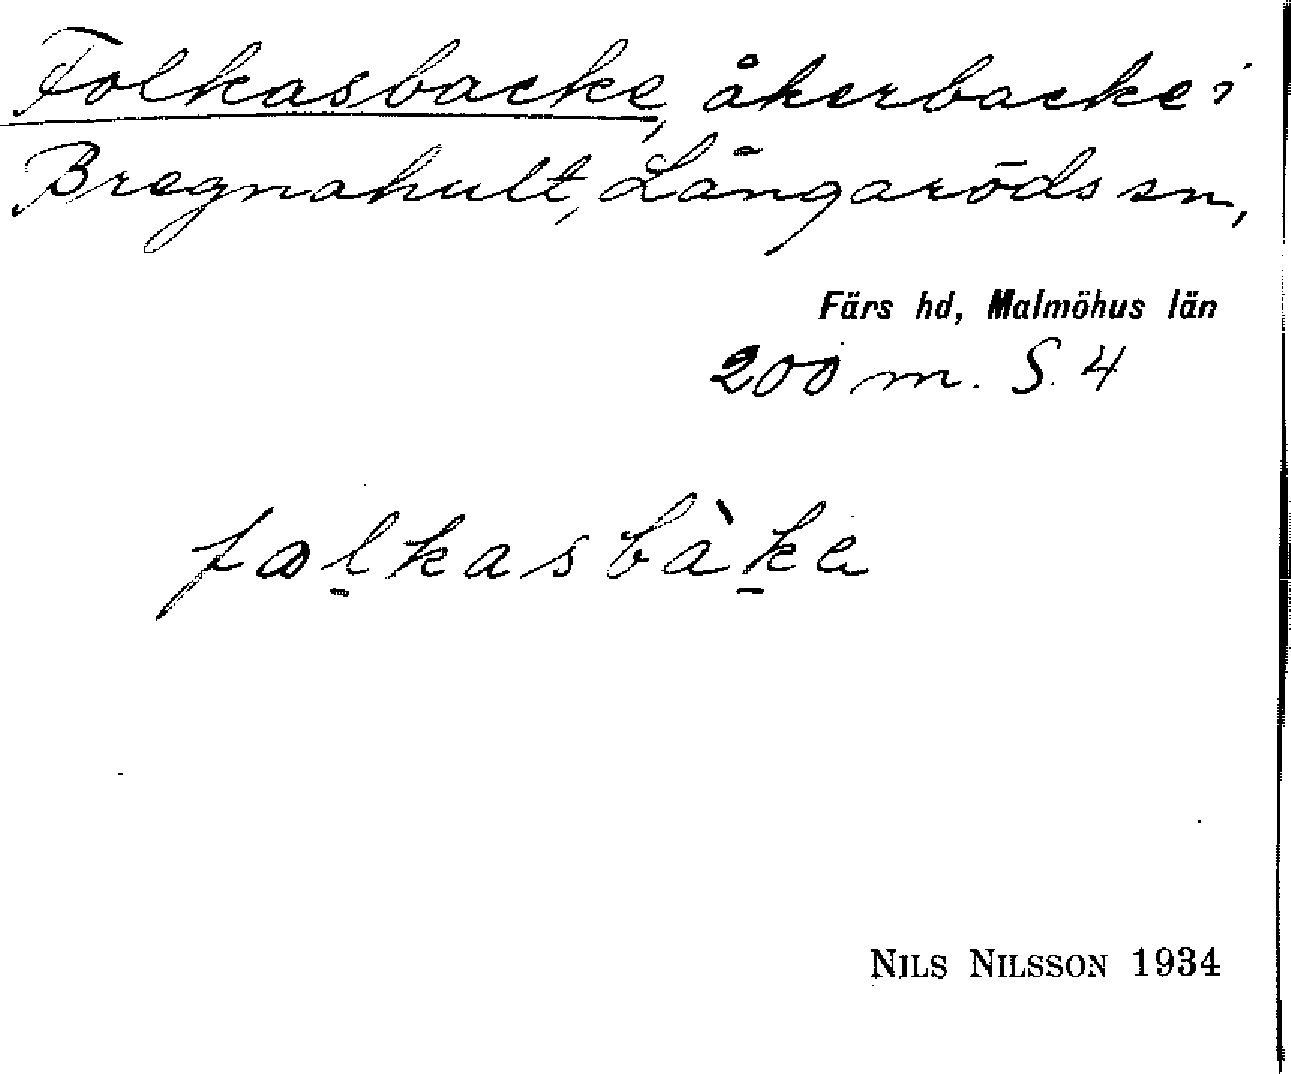 Folkasbacke, åkerbacke i
Bregnahult, Långaröds sn,
Färs hd, Malmöhus län
200 m. S. 4
falkasbàka
NILS NILSSON 1934